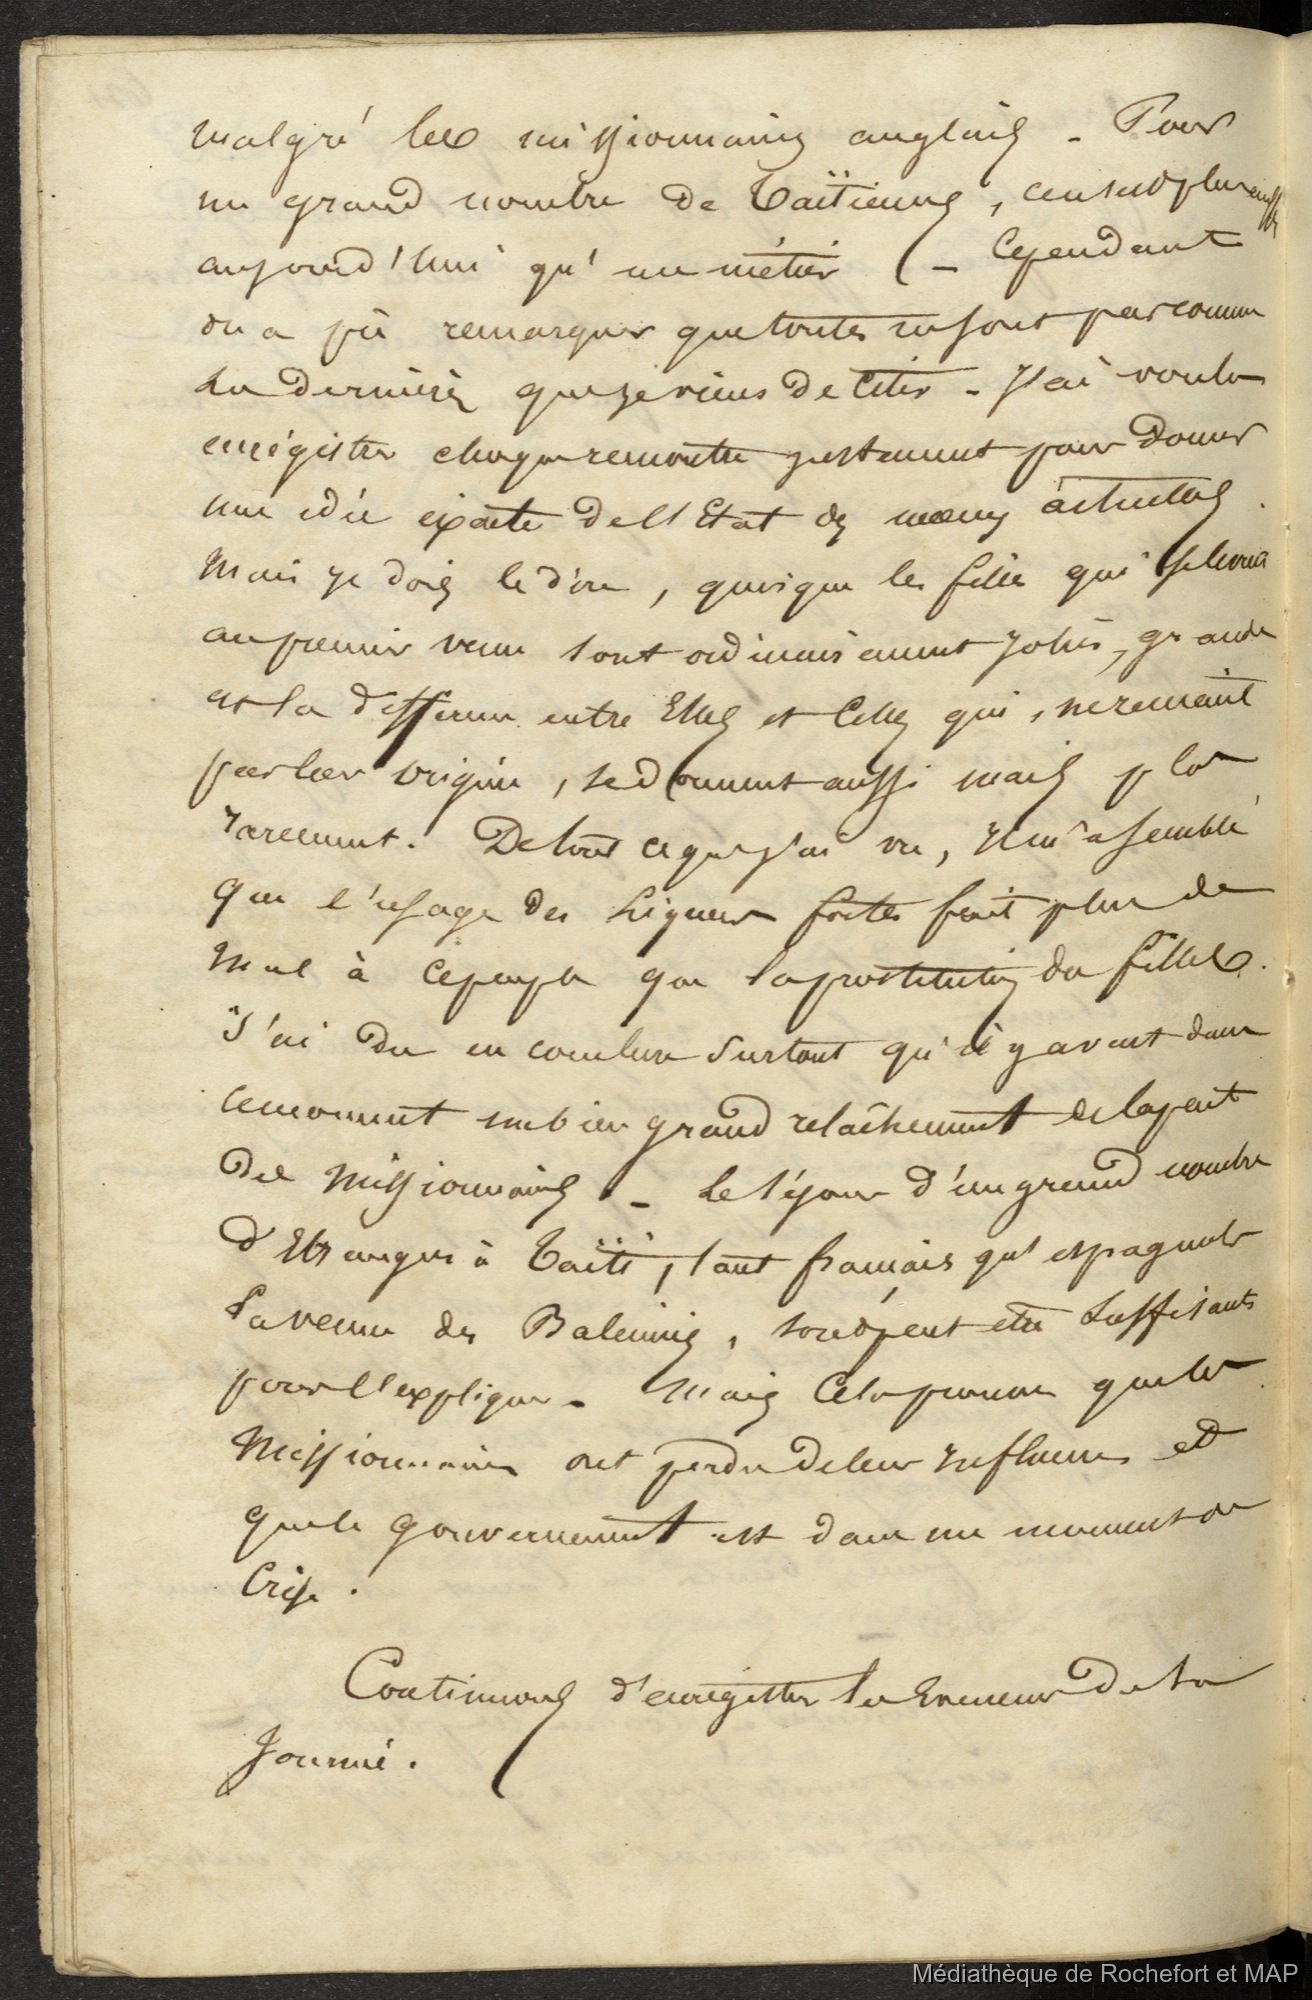 malgré les missionnaires anglais - Pour
un grand nombre de Taïtiennes, ce n'est plus aussi
aujourd'hui qu'un métier - Cependant
on a pû remarquer que toutes ne sont pas comme
la dernière que je viens de Citer - J'ai voulu
enrégistrer chaque rencontre justement pour donner
une idée exacte de l'Etat des moeurs actuelles.
Mais je dois le dire, quoique les filles qui se livrent
au premier venu sont ordinairement jolies, grande
est la différence entre Elles et Celles qui,
par leur origine, se donnent aussi mais plus
rarement. De tout ce que j'ai vu, Il m'a semblé
que l'usage des Liqueurs fortes fait plus de
mal à ce peuple que la prostitution des filles.
J'ai du en conclure surtout qu'il y avait dans
ce moment un bien grand relâchement de la part
des Missionnaires - Le séjour d'un grand nombre
d'Etrangers à Taïti, tant français qu'espagnols
La venue des Baleiniers, sont peut être suffisants
pour l'expliquer - Mais Cela prouve que les
Missionnaires ont perdu de leur Influence et
que le gouvernement est dans un moment de
Crise.
Continuons d'enregistrer les Evenemens de la
Journée.
Médiathèque de Rochefort et MAP